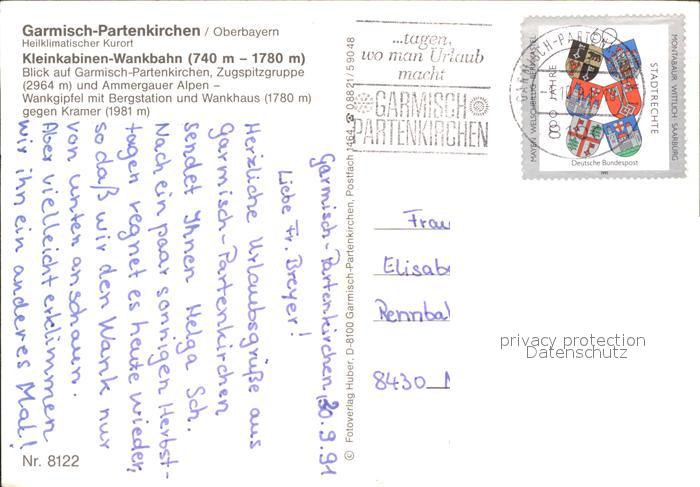 Garmisch-Partenkirchen / Oberbayern
Heilklimatischer Kurort
Kleinkabinen-Wankbahn (740 m – 1780 m)
Blick auf Garmisch-Partenkirchen, Zugspitzgruppe
(2964 m) und Ammergauer Alpen –
Wankgipfel mit Bergstation und Wankhaus (1780 m)
gegen Kramer (1981 m)
Garmisch-Partenkirchen, 30.9.91
Liebe Fr. Breyer!
Herzliche Urlaubsgrüße aus
Garmisch-Partenkirchen
sendet Ihnen Helga Sch.
Nach ein paar sonnigen Herbst-
tagen regnet es heute wieder,
sodaß wir den Wank nur
von unten anschaun.
Aber vielleicht erklimmen
wir ihn ein anderes Mal!
Nr. 8122
© Fotoverlag Huber, D-8100 Garmisch-Partenkirchen, Postfach 1464, ✆ 08821/59048
...tagen,
wo man Urlaub
macht
GARMISCH
PARTENKIRCHEN
GARMISCH-PARTEN
MONTABAUR WITTLICH SAARBURG
STADTRECHTE
700 JAHRE
MAYEN WELSCHBILLIG BERNKASTEL
Deutsche Bundespost
1991
Frau
Elisab
Rennba
8430
privacy protection
Datenschutz